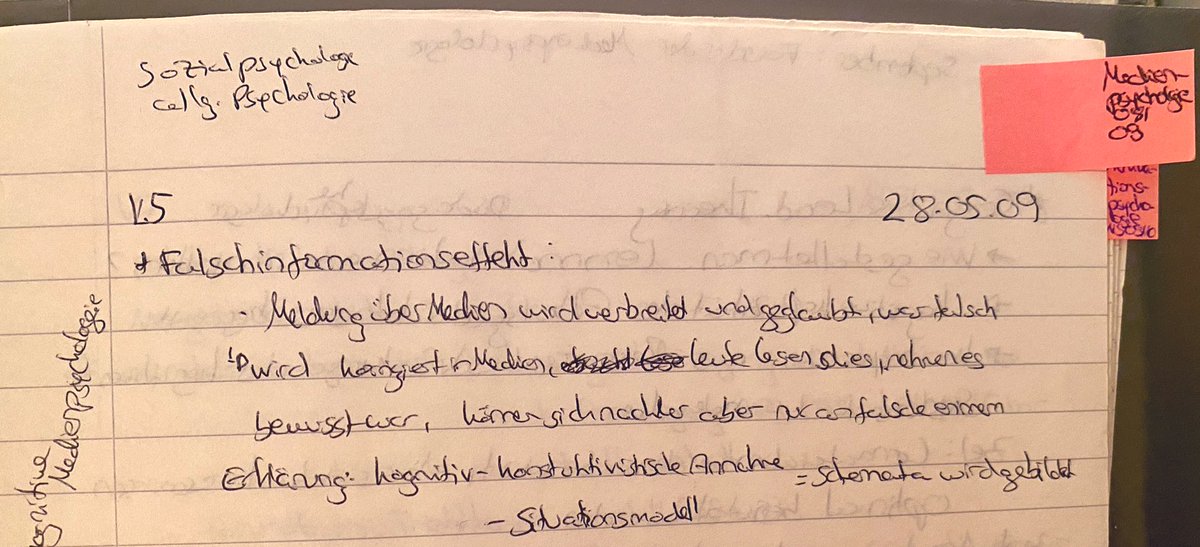 Sozialpsychologie
allg. Psychologie
Medien-
psychologie
09
tions-
psycho
V.5
28.05.09
* Falschinformationseffekt:
- Meldung über Medien wird verbreitet und geglaubt, war falsch
wird korrigiert in Medien, Leute lesen dies, nehmen es
bewusst war, können sich nachher aber nur an falsche erinnern
Erklärung: kognitiv-konstruktivistische Annahme = Schemata wird gebildet
- Situationsmodell
kognitive
Medienpsychologie